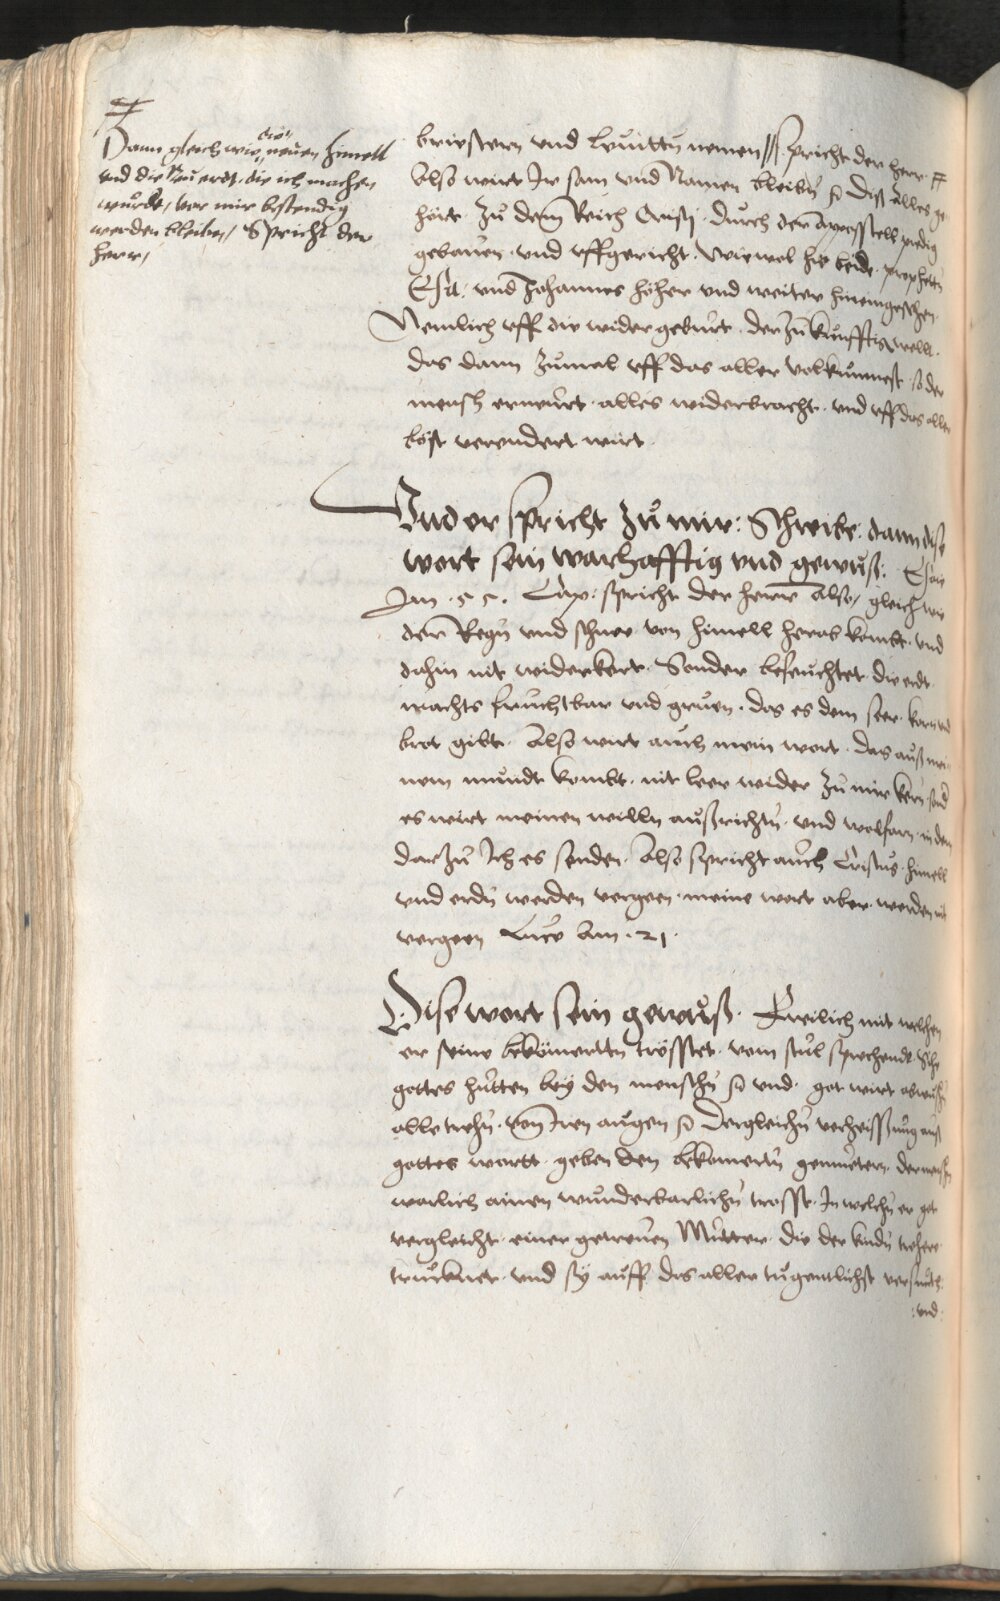 Dann gleich wie die neuen himell
vnd die Neu erdt, die ich machen
wurde, vor mir bestendig
werden bleiben, Spricht der
herr,
briestern vnd Leuittn nemen // Spricht der herr
Also wirt Ir sam vnd Namen bleibn Dist alles ge
hört zů dem Reich Cristj durch der Apostell predig
gebauen vnd vffgericht. Wiewol hie beide prophetn
Esa: vnd Johannes höher vnd weiter hineingesehen
Nemlich vff die widergeburt der zůkunfftig welt.
das dann zůmal vff das aller volkumnest so der
mensch erneurt alles widerbracht vnd vff das aller
böst verendert wirt.
Vnd er spricht zů mir: Schreibe: dann dise
wort sein warhafftig vnd gewuß: Esaie
Im .55. Cap: spricht der herre Also, gleich wie
der Regn vnd schnee von himell herab kombt vnd
dahin nit widerkert. Sonder befeuchtet die erdt
machts fruchtbar vnd gruen. das es dem seer korn vnd
brot gibt. Also wirt auch mein wort. das auß mei
nem mundt kombt. nit leer wider zů mir kern sond
es wirt meinen willn außrichtn vnd wolfarn in dem
darzů Ich es senden. Also spricht auch Cristus himell
vnd erdn werden vergeen meine wort aber werden nit
vergeen Luce Am .21.
Dise wort sein gewuß. Freilich mit welchen
er seine bekömertn trösstet. vom stůl sprechendt. Sih
gottes hütten bey den menschn vnd got wirt abwüschn
alle trehn von Iren augen Dergleichn verheissung auß
gottes wortt geben den bekomertn gemuetern der menschn
warlich ainen wunderbarlichn trosst. In welchn er got
vergleicht einer getreuen Mutter die der kindn trehere
trucknet vnd sy auff das aller tugentlichst versünt
: vnd :